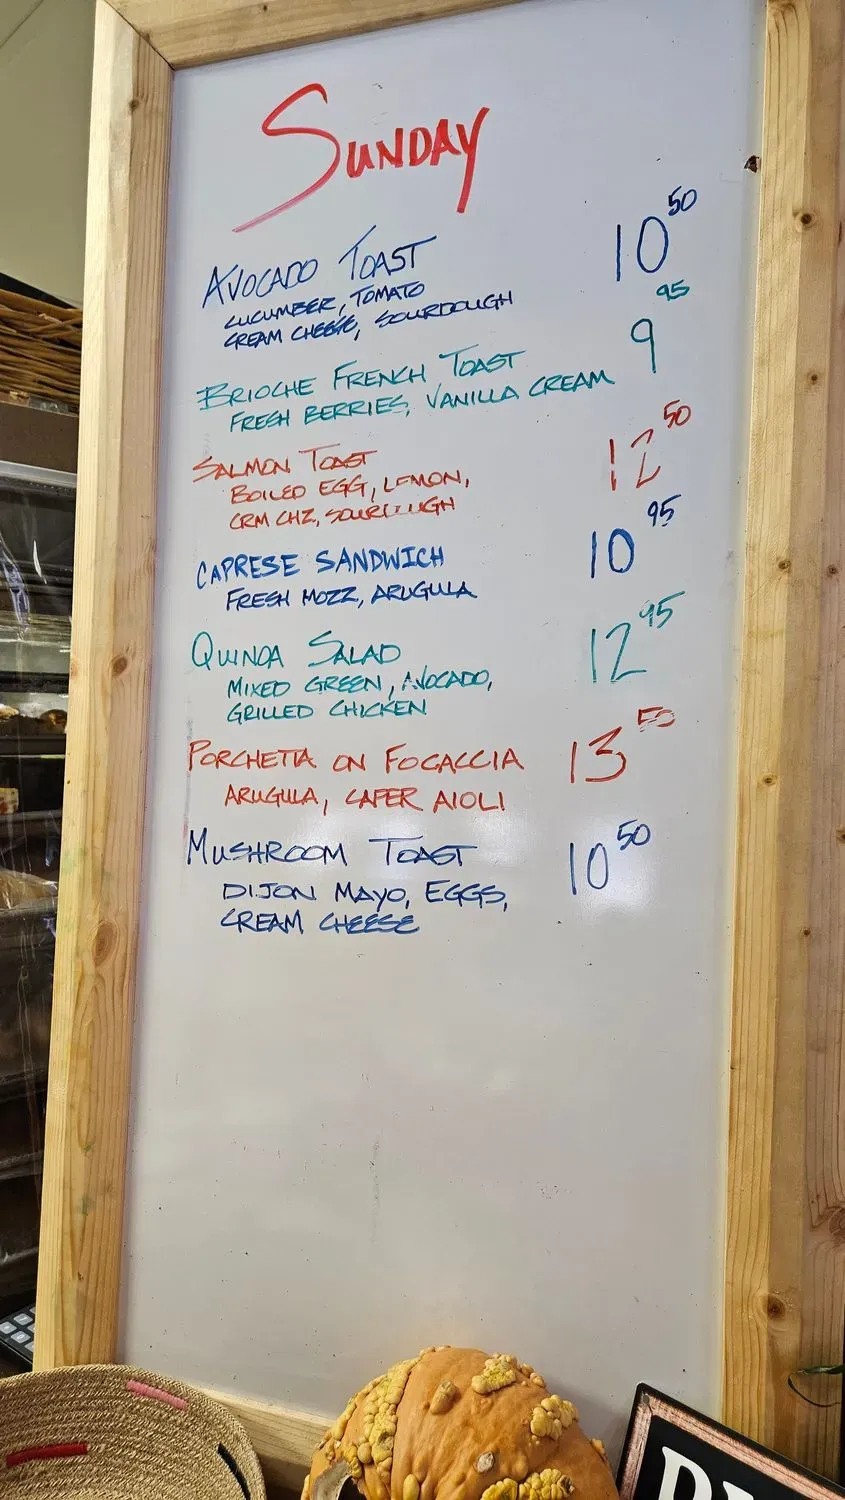 SUNDAY
AVOCADO TOAST 10 50
CUCUMBER, TOMATO
CREAM CHEESE, SOURDOUGH
BRIOCHE FRENCH TOAST 9 95
FRESH BERRIES, VANILLA CREAM
SALMON TOAST 12 50
BOILED EGG, LEMON,
CRM CHZ, SOURDOUGH
CAPRESE SANDWICH 10 95
FRESH MOZZ, ARUGULA
QUINOA SALAD 12 95
MIXED GREEN, AVOCADO,
GRILLED CHICKEN
PORCHETTA ON FOCACCIA 13 50
ARUGULA, CAPER AIOLI
MUSHROOM TOAST 10 50
DIJON MAYO, EGGS,
CREAM CHEESE